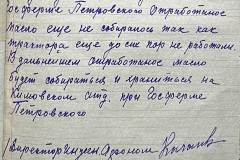 госферме Петровского Отработанное
масло еще не собиралось так как
трактора еще до сих пор не работали.
В дальнейшем отработанное масло
будет собираться и храниться на
при Госферме
Петровского
Агроном